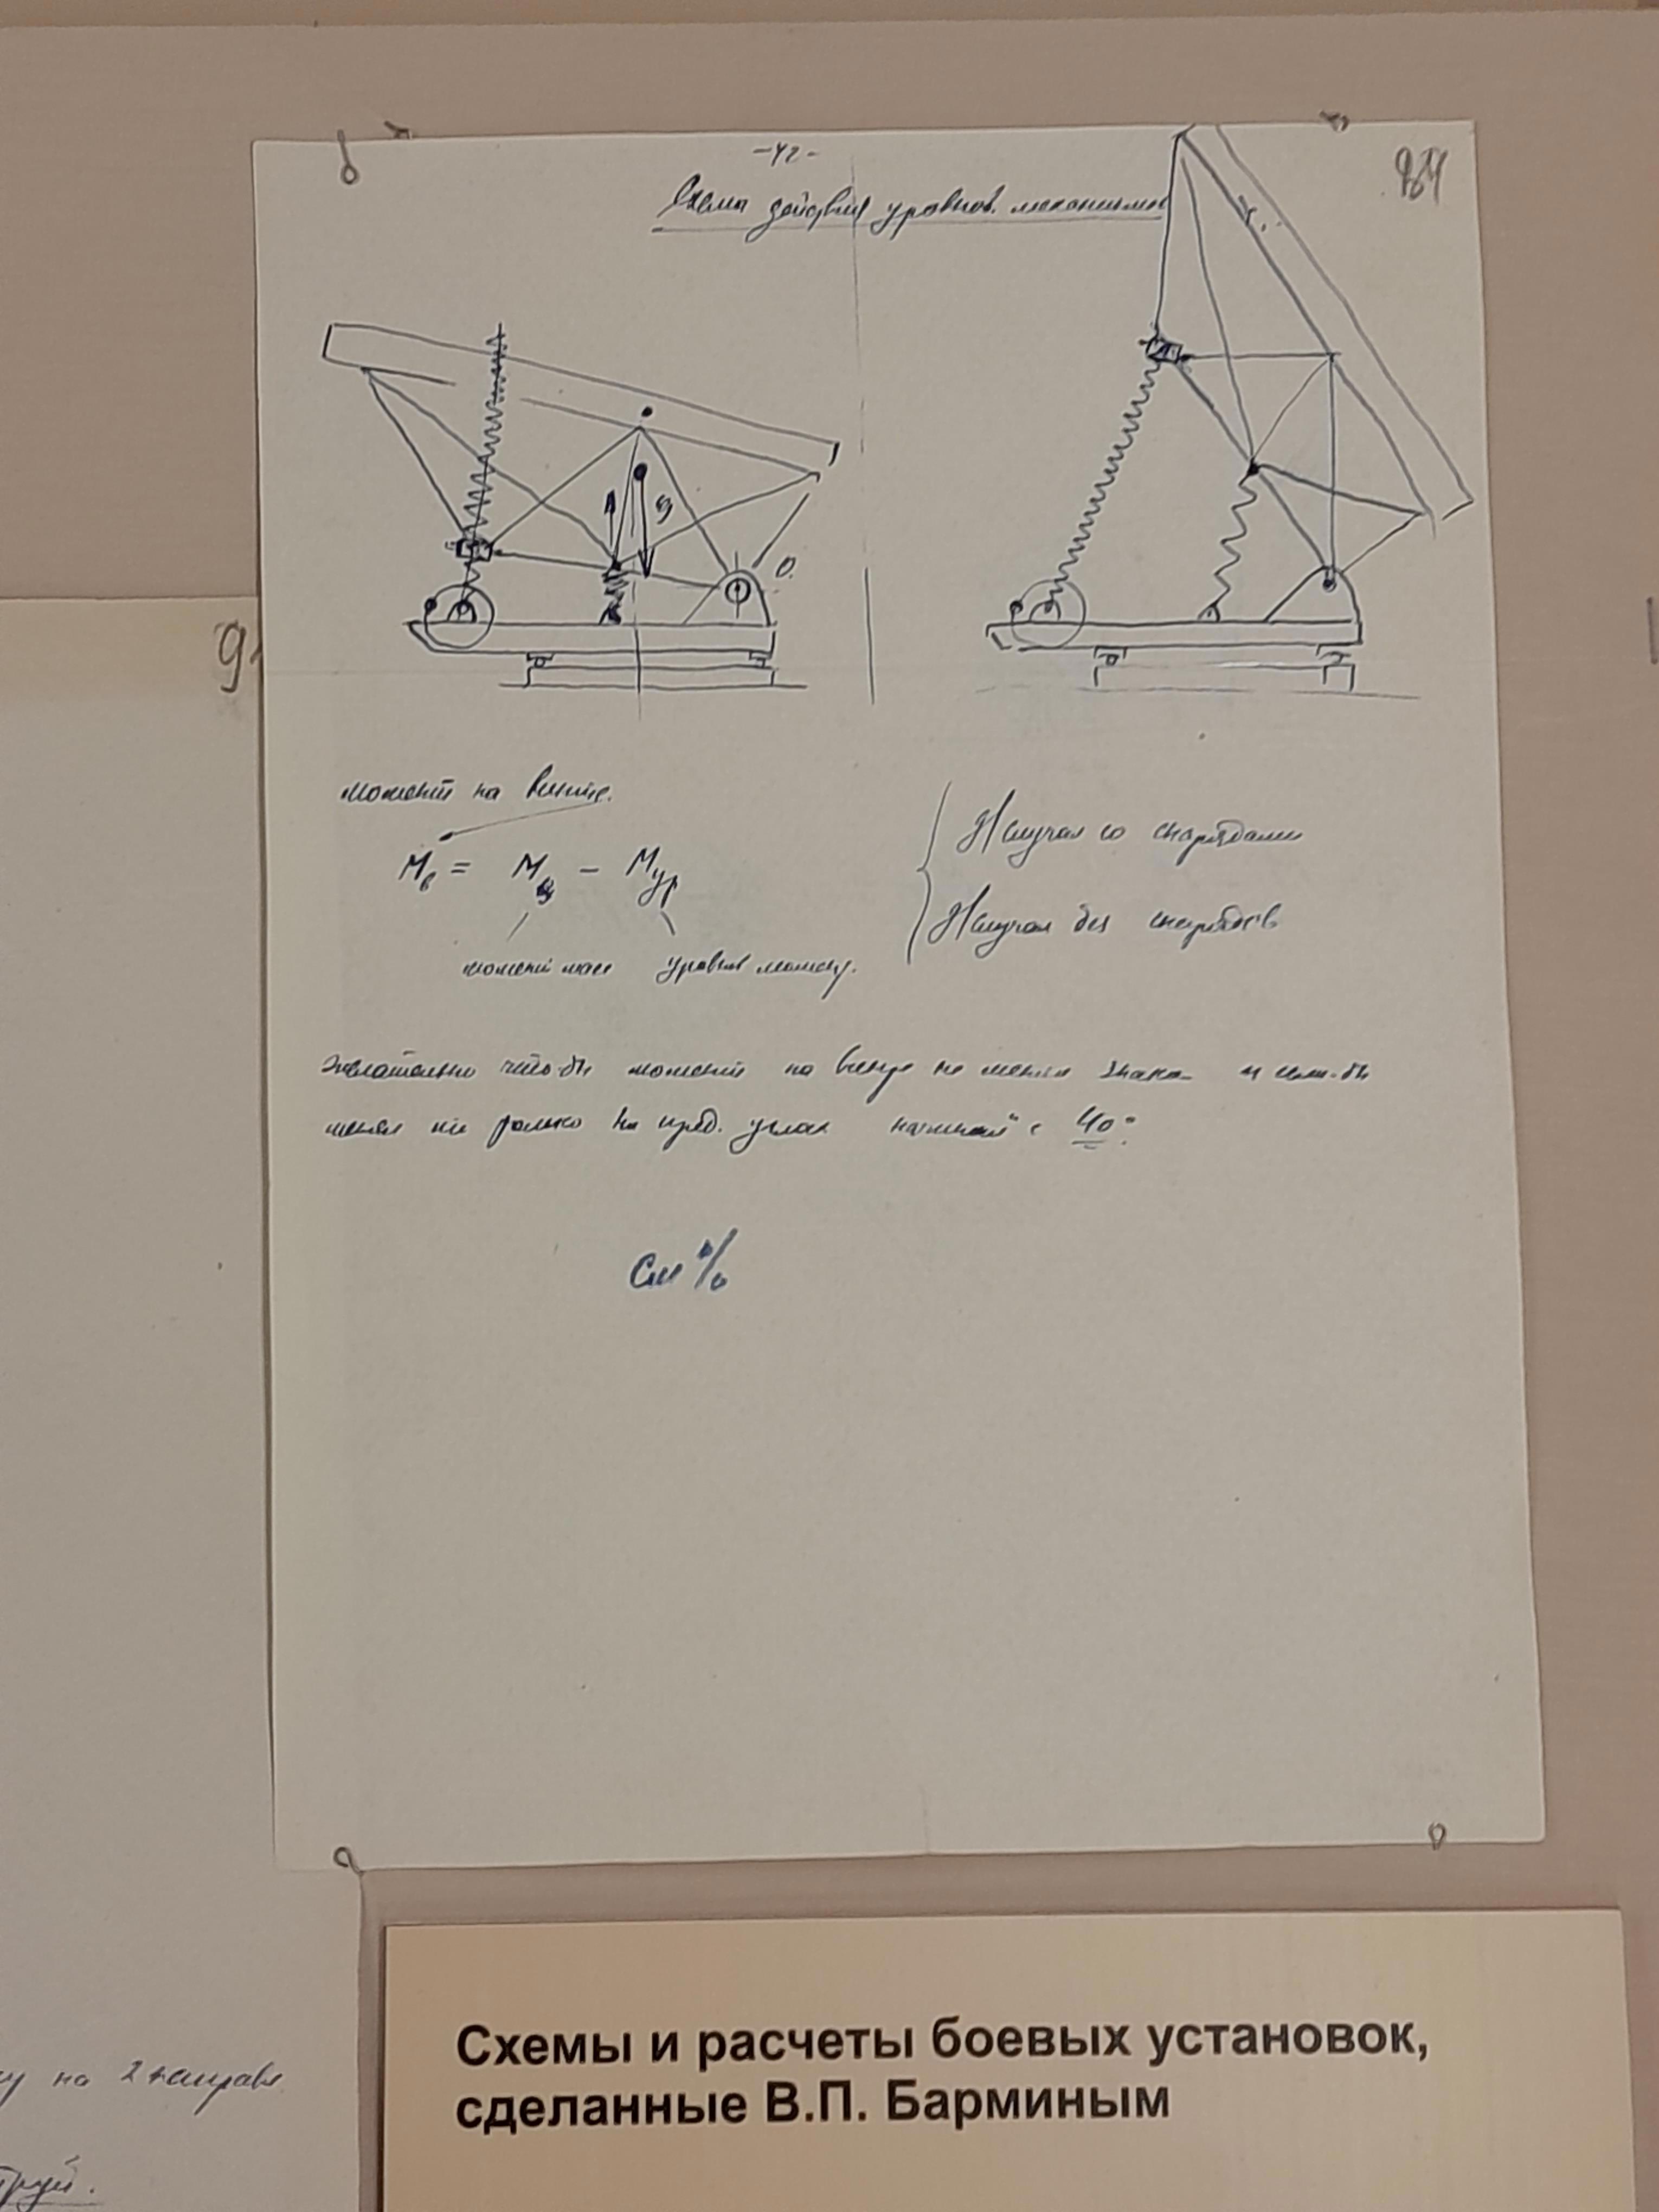 -42-
Схема действия уровнов. механизма
O.
момент на винте.
Mв = Mq - Mур
момент масс уровнов механ.
Для случая со снарядами
Для случая без снарядов
Желательно что-бы момент на винте не менял знака и если-бы
менял то только на пред. углах начиная с 40°
См %
9
на 2 направл.
Схемы и расчеты боевых установок,
сделанные В.П. Барминым